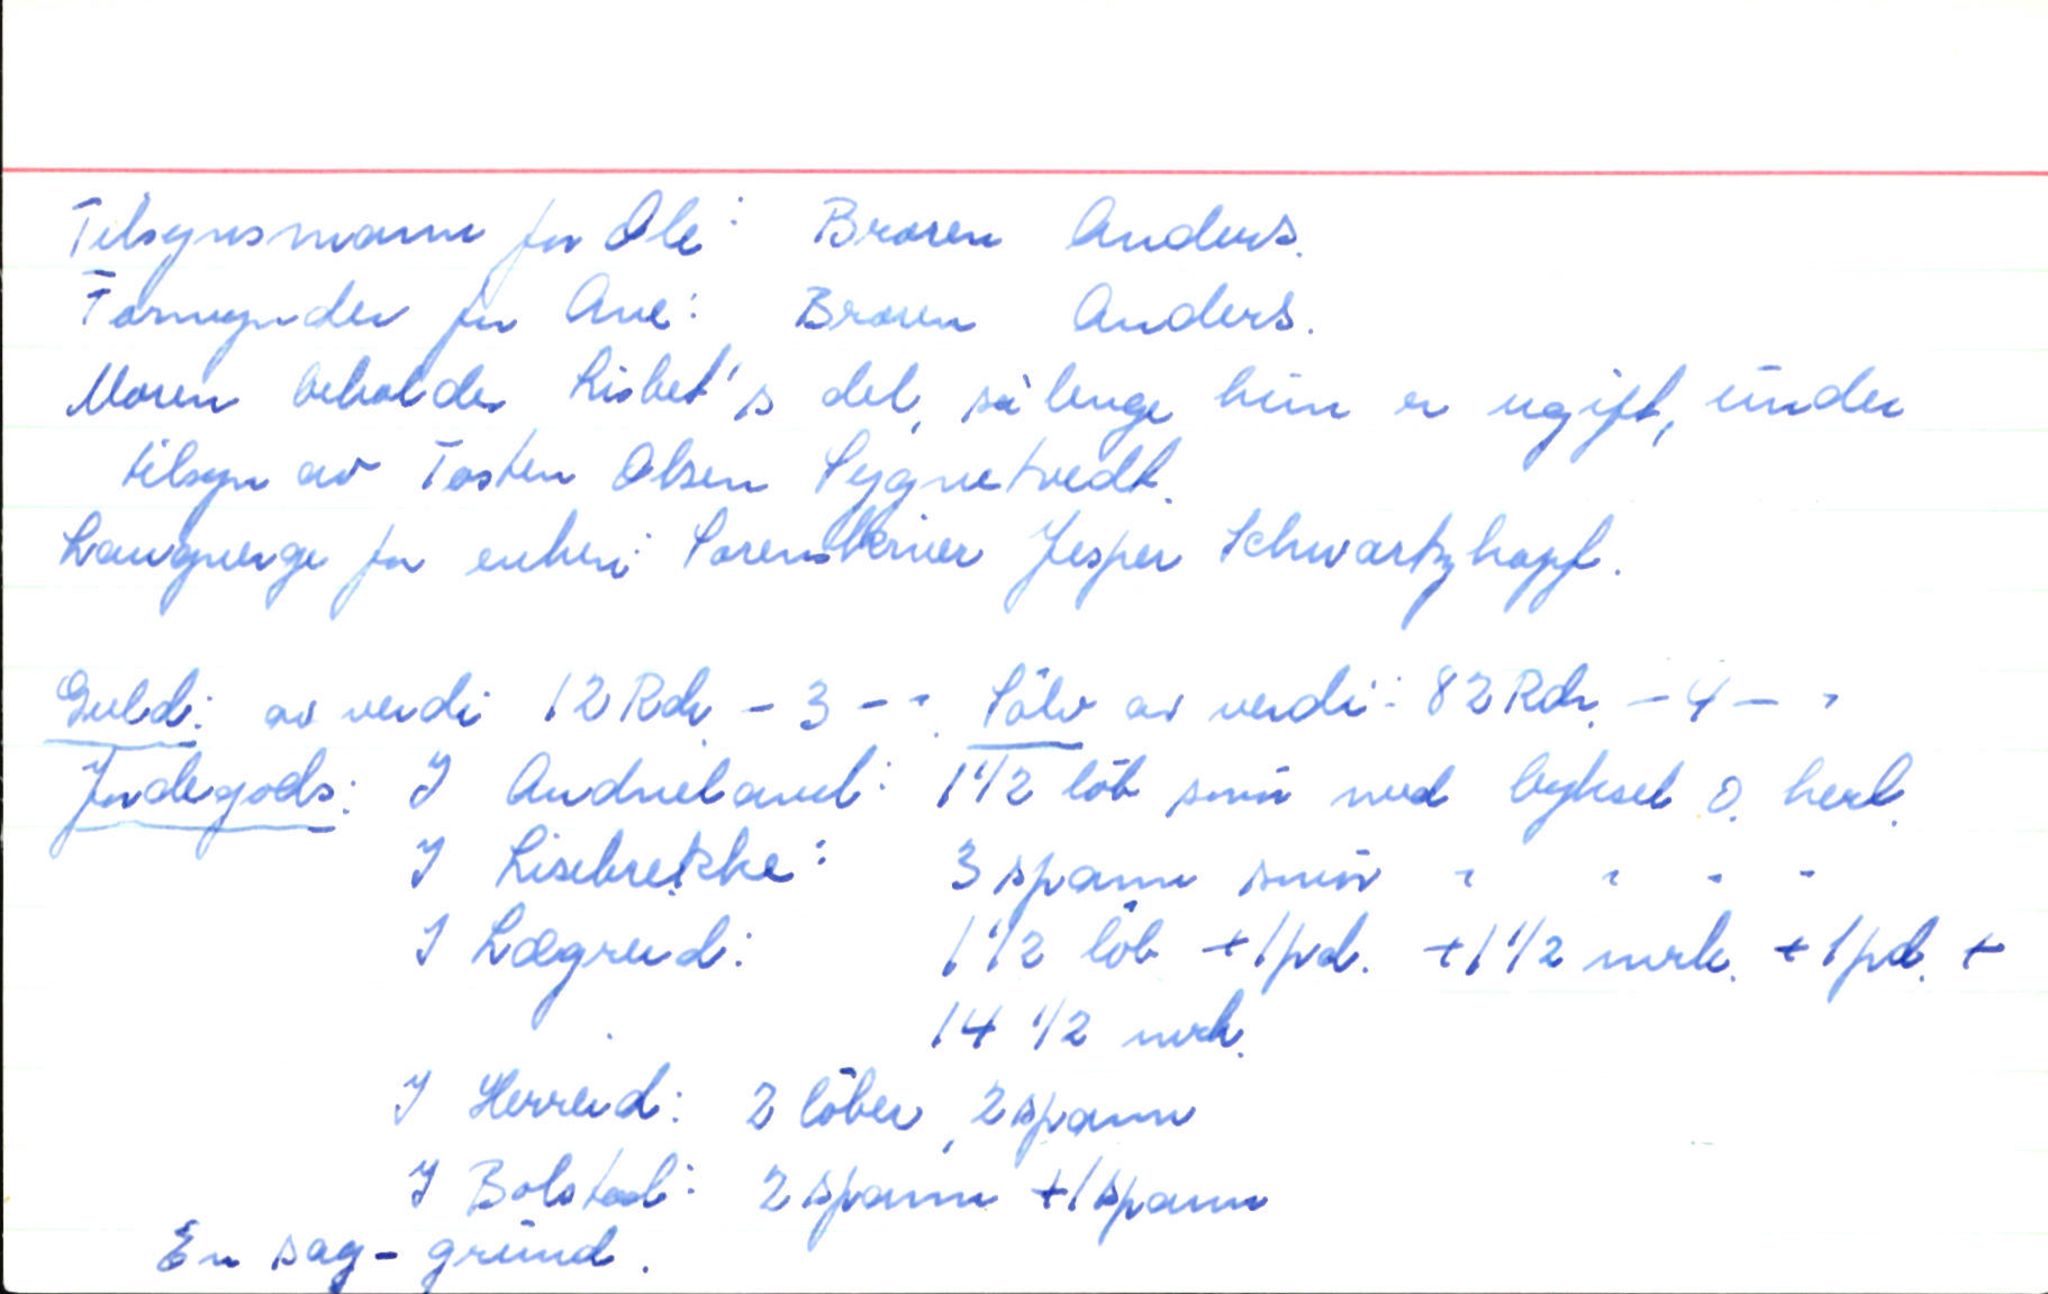 Tilsynsmann for Ole: Broren Anders.
Formynder for Ane: Broren Anders.
Moren beholder Lisbet's del, så lenge hun er ugift, under
tilsyn av Tosten Olsen Sygnetvedt.
Laugverge for enken: Sorenskriver Jesper Schwartzkopf.
Guld: av verdi 12 Rdr. - 3 - -. Sölv av verdi: 82 Rdr. - 4 - -
Jordegods: I Andneland: 1 1/2 löb smör med byksel o. herl.
I Lisebrekke: 3 spann smör " " " "
I Lægreid: 1 1/2 löb + 1 pd. + 1 1/2 mrk. + 1 pd. +
14 1/2 mrk.
I Herreid: 2 löber, 2 spann
I Bolstad: 2 spann + 1 spann
En sag-grund.